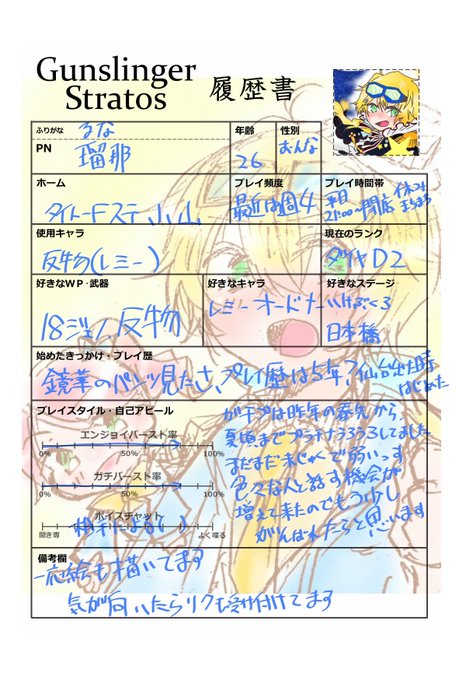 Gunslinger
Stratos
履歴書
ふりがな るな
PN 瑠那
年齢 26
性別 おんな
ホーム
タイトーFステ 小山
プレイ頻度
最近は週4
プレイ時間帯
平日
21:00〜閉店
休み
まちまち
使用キャラ
反物(レミー)
現在のランク
ダイヤD2
好きなWP・武器
18ジェノ 反物
好きなキャラ
レミーオードナー
好きなステージ
いけぶくろ
日本橋
始めたきっかけ・プレイ歴
鏡華のパンツ見たさ、プレイ歴は5年?仙台出た時
はじめた
プレイスタイル・自己アピール
エンジョイバースト率
0% 50% 100%
ガチバースト率
0% 50% 100%
ボイスチャット
聞き専 よく喋る
相手による
ガチプは昨年の春先から、
夏頃までプラチナうろうろしてました
まだまだ未じゅくで弱いっす
色々な人と話す機会が
増えて来たのでもう少し
がんばれたらと思います
備考欄
一応絵も描いてます
気が向いたらリクも受け付けてます